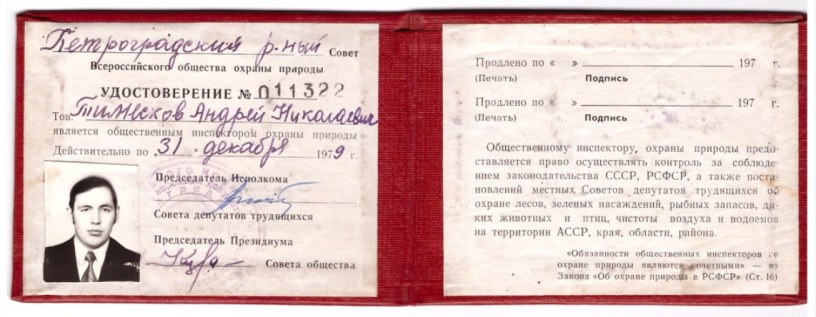 Петроградский р-ный Совет
Всероссийского общества охраны природы
УДОСТОВЕРЕНИЕ № 011322
Тов. Андрей Николаевич
является общественным инспектором охраны природы
Действительно по 31 декабря 1979 г.
Председатель Исполкома
Совета депутатов трудящихся
Председатель Президиума
Совета общества
Продлено по « » 197 г.
(Печать) Подпись
Продлено по « » 197 г.
(Печать) Подпись
Общественному инспектору, охраны природы предо-
ставляется право осуществлять контроль за соблюде-
нием законодательства СССР, РСФСР, а также пост-
новлений местных Советов депутатов трудящихся об
охране лесов, зеленых насаждений, рыбных запасов, ди-
ких животных и птиц, чистоты воздуха и водоемов
на территории АССР, края, области, района.
«Обязанности общественных инспекторов по
охране природы являются почетными» — из
Закона «Об охране природы в РСФСР» (Ст. 16)